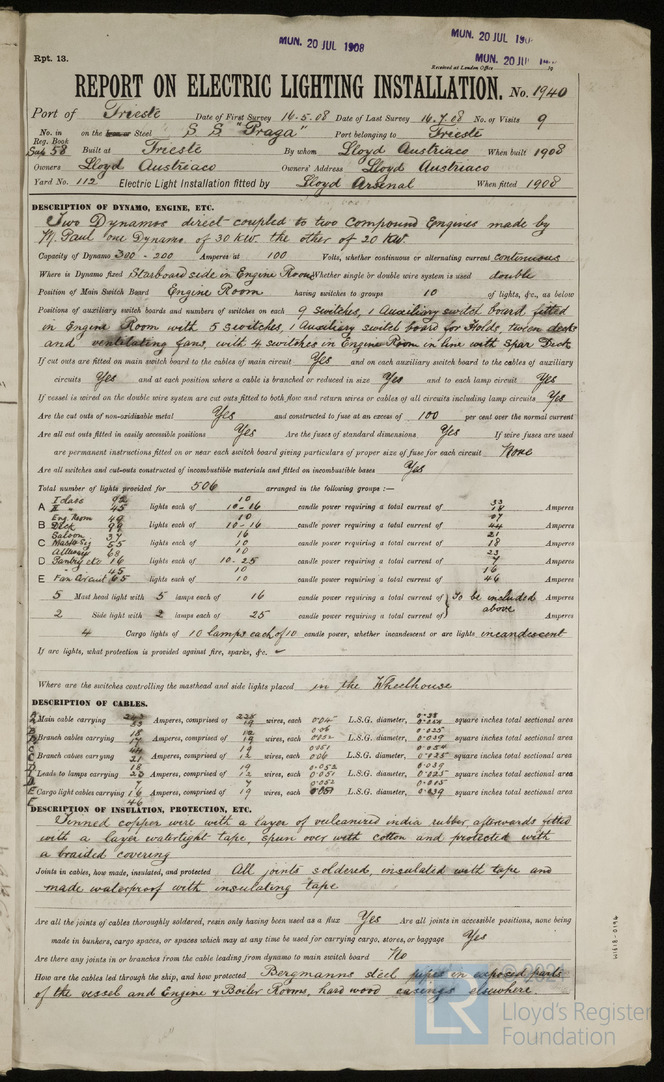 MUN. 20 JUL 1908
MUN. 20 JUL 190
MUN. 20 JUL
Rpt. 13.
Received at London Office 19
REPORT ON ELECTRIC LIGHTING INSTALLATION. No. 1940
Port of Trieste Date of First Survey 16.5.08 Date of Last Survey 16.7.08 No. of Visits 9
No. in Reg. Book Sup 58 on the Iron or Steel S S "Praga" Port belonging to Trieste
Built at Trieste By whom Lloyd Austriaco When built 1908
Owners Lloyd Austriaco Owners' Address Lloyd Austriaco
Yard No. 112 Electric Light Installation fitted by Lloyd Arsenal When fitted 1908
DESCRIPTION OF DYNAMO, ENGINE, ETC.
Two Dynamos direct coupled to two Compound Engines made by
M. Paul one Dynamo of 30 KW. the other of 20 KW.
Capacity of Dynamo 300 - 200 Amperes at 100 Volts, whether continuous or alternating current continuous
Where is Dynamo fixed Starboard side in Engine Room Whether single or double wire system is used double
Position of Main Switch Board Engine Room having switches to groups 10 of lights, &c., as below
Positions of auxiliary switch boards and numbers of switches on each 9 switches, 1 Auxiliary switch board fitted
in Engine Room with 5 switches, 1 Auxiliary switch board for Holds, tween decks
and ventilating fans, with 4 switches in Engine Room in line with Spar Deck
If cut outs are fitted on main switch board to the cables of main circuit Yes and on each auxiliary switch board to the cables of auxiliary
circuits Yes and at each position where a cable is branched or reduced in size Yes and to each lamp circuit Yes
If vessel is wired on the double wire system are cut outs fitted to both flow and return wires or cables of all circuits including lamp circuits Yes
Are the cut outs of non-oxidizable metal Yes and constructed to fuse at an excess of 100 per cent over the normal current
Are all cut outs fitted in easily accessible positions Yes Are the fuses of standard dimensions Yes If wire fuses are used
are permanent instructions fitted on or near each switch board giving particulars of proper size of fuse for each circuit None
Are all switches and cut-outs constructed of incombustible materials and fitted on incombustible bases Yes
Total number of lights provided for 506 arranged in the following groups :—
I class 92 10 33
A II " 45 lights each of 10-16 candle power requiring a total current of 18 Amperes
Eng. Room 49 10
B Deck lights each of 10-16 candle power requiring a total current of 44 Amperes
Saloon 37 16 21
C 55 lights each of 10 candle power requiring a total current of 18 Amperes
Alleway 68 10 23
D Pantry etc 16 lights each of 10-25 candle power requiring a total current of 7 Amperes
45 10 16
E Fan Circuit 65 lights each of 10 candle power requiring a total current of 46 Amperes
5 Mast head light with 5 lamps each of 16 candle power requiring a total current of To be included Amperes
2 Side light with 2 lamps each of 25 candle power requiring a total current of above Amperes
4 Cargo lights of 10 lamps each of 10 candle power, whether incandescent or arc lights incandescent
If arc lights, what protection is provided against fire, sparks, &c.
Where are the switches controlling the masthead and side lights placed in the Wheelhouse
DESCRIPTION OF CABLES.
Main cable carrying Amperes, comprised of 19 wires, each L.S.G. diameter, square inches total sectional area
Branch cables carrying Amperes, comprised of 19 wires, each L.S.G. diameter, square inches total sectional area
Branch cables carrying 21 Amperes, comprised of 12 wires, each 0.06 L.S.G. diameter, 0.025 square inches total sectional area
Leads to lamps carrying 23 Amperes, comprised of 12 wires, each 0.051 L.S.G. diameter, 0.025 square inches total sectional area
Cargo light cables carrying 16 Amperes, comprised of 19 wires, each 0.051 L.S.G. diameter, 0.039 square inches total sectional area
46
DESCRIPTION OF INSULATION, PROTECTION, ETC.
Tinned copper wire with a layer of vulcanized india rubber, afterwards fitted
with a layer watertight tape, spun over with cotton and protected with
a braided covering
Joints in cables, how made, insulated, and protected All joints soldered, insulated with tape and
made waterproof with insulating tape
Are all the joints of cables thoroughly soldered, resin only having been used as a flux Yes Are all joints in accessible positions, none being
made in bunkers, cargo spaces, or spaces which may at any time be used for carrying cargo, stores, or baggage Yes
Are there any joints in or branches from the cable leading from dynamo to main switch board No
How are the cables led through the ship, and how protected Bergmanns steel pipes in exposed parts
of the vessel and Engine & Boiler Rooms, hard wood casings elsewhere
W1118-0196
© 2021
LR
Lloyd's Register
Foundation